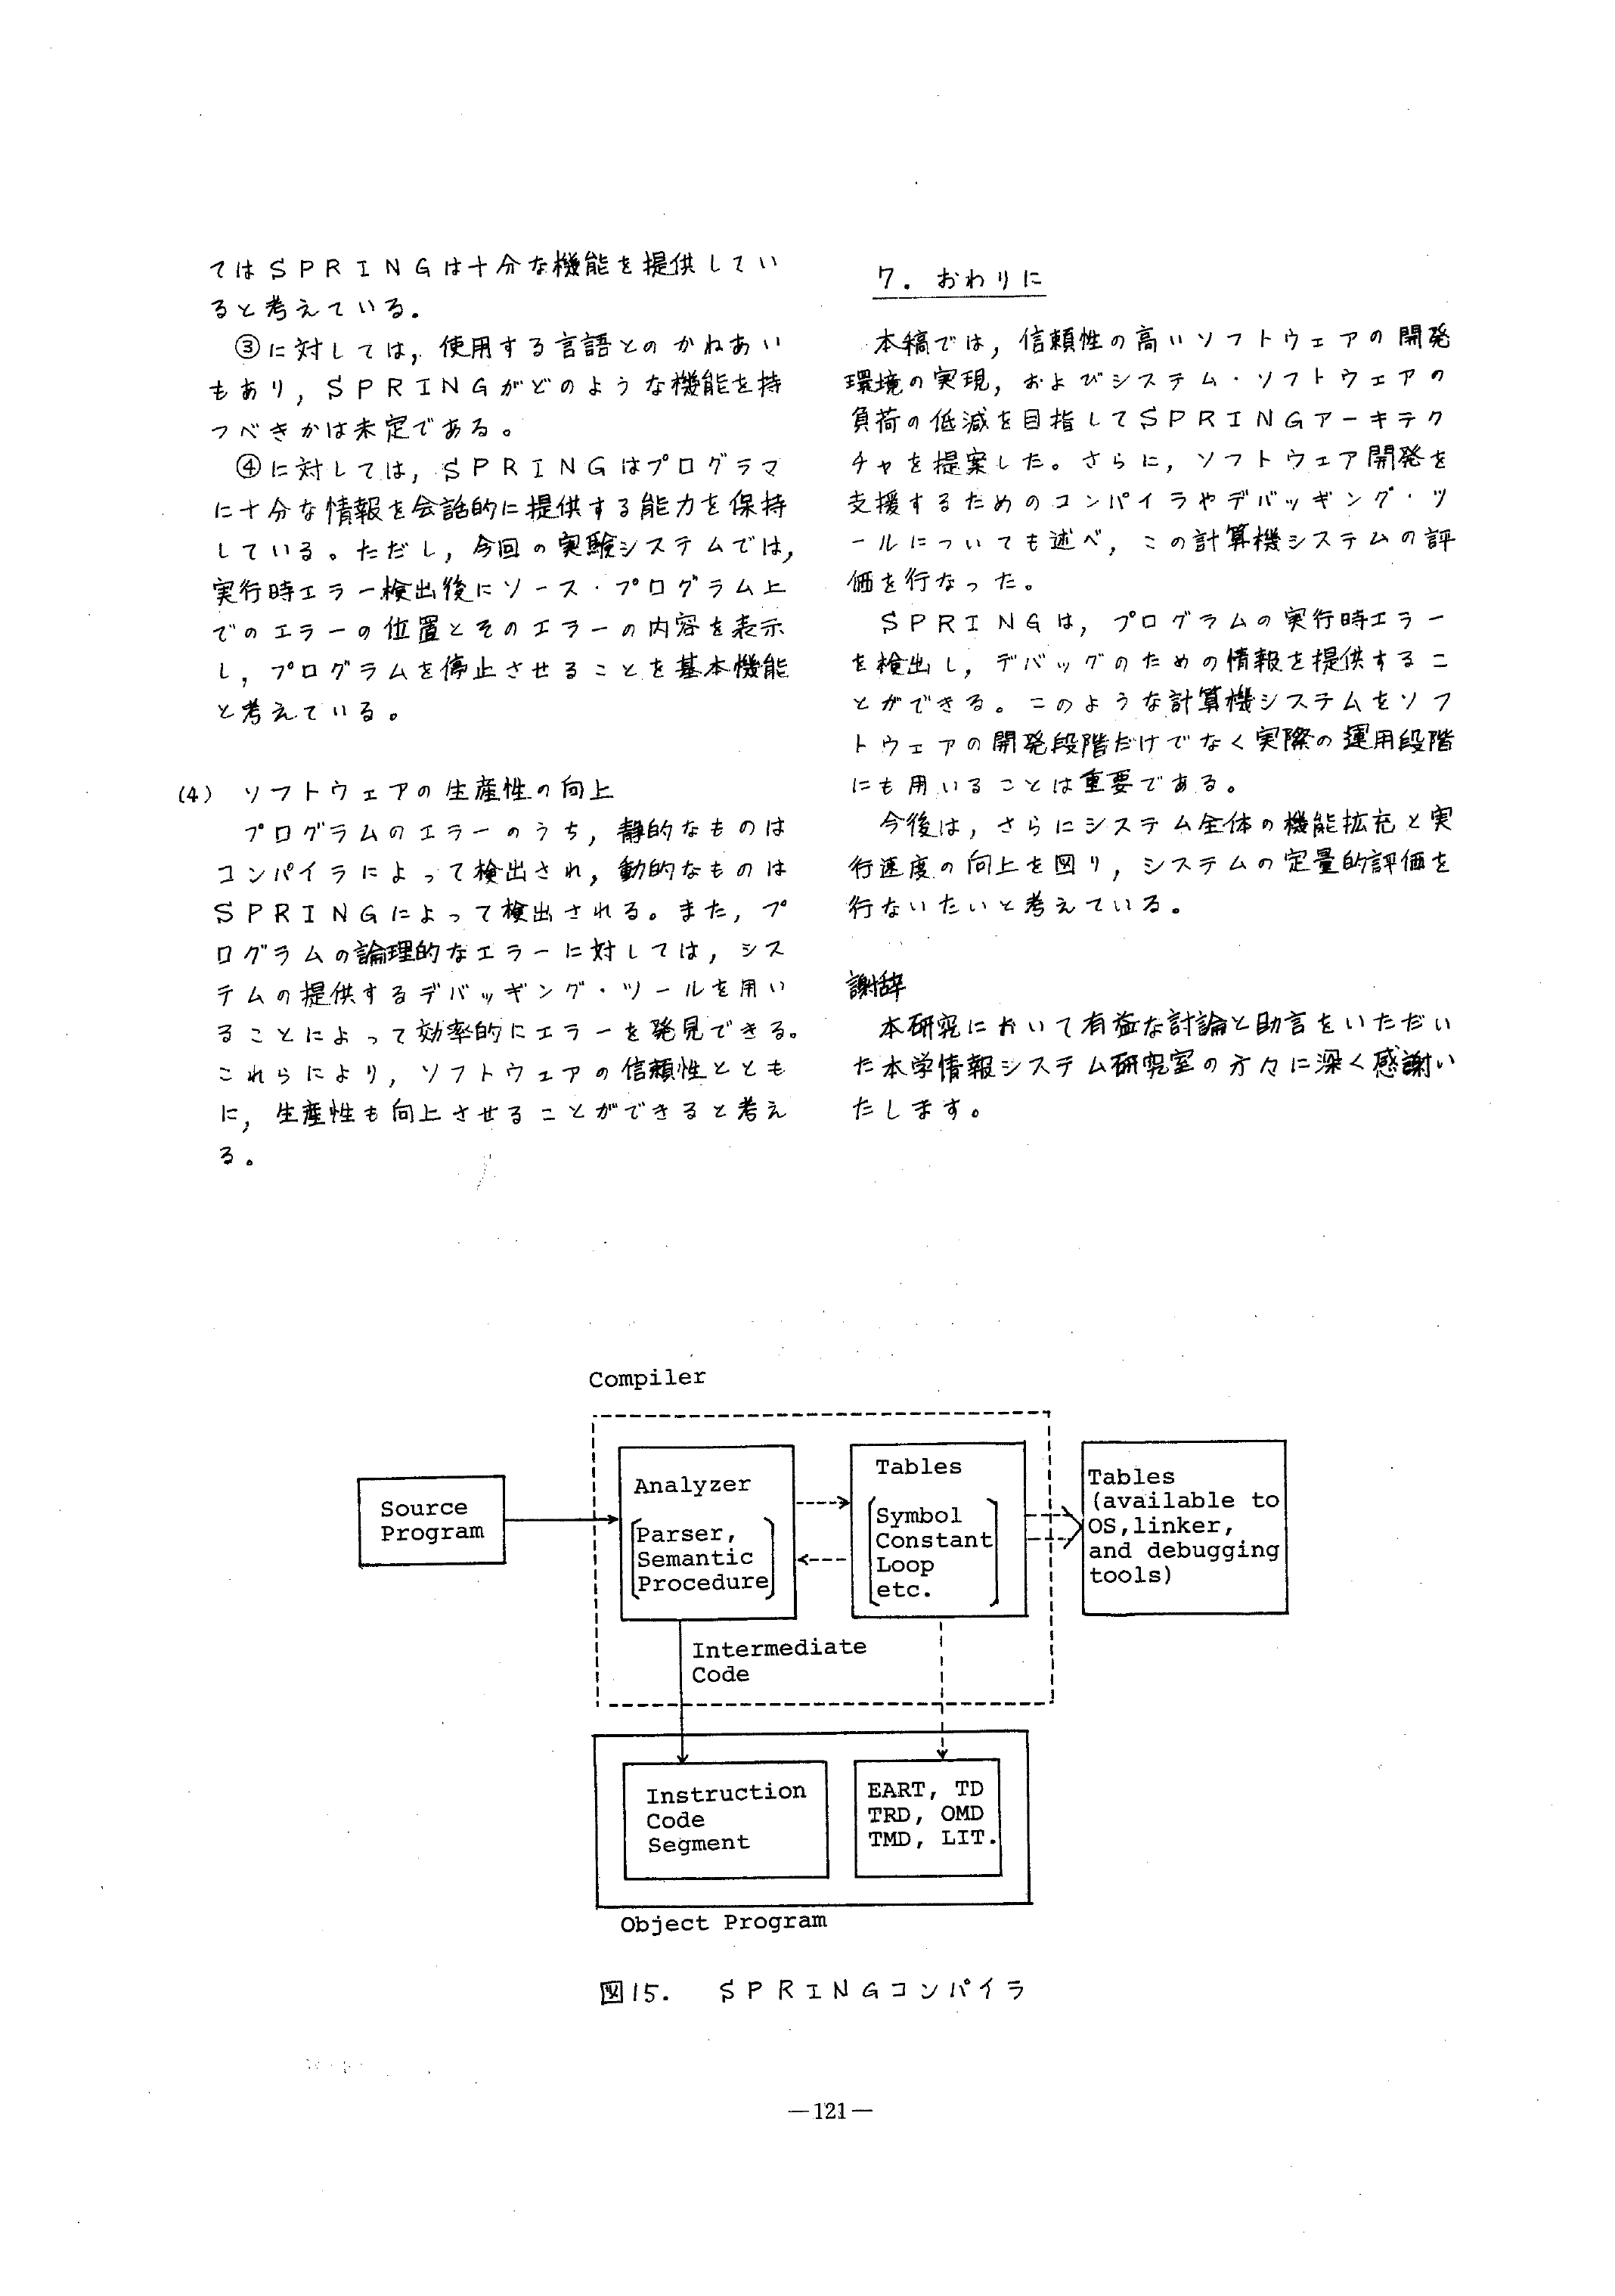 てはＳＰＲＩＮＧは十分な機能を提供してい
ると考えている。
③に対しては，使用する言語とのかねあい
もあり，ＳＰＲＩＮＧがどのような機能を持
つべきかは未定である。
④に対しては，ＳＰＲＩＮＧはプログラマ
に十分な情報を会話的に提供する能力を保持
している。ただし，今回の実験システムでは，
実行時エラー検出後にソース・プログラム上
でのエラーの位置とそのエラーの内容を表示
し，プログラムを停止させることを基本機能
と考えている。
(4) ソフトウェアの生産性の向上
プログラムのエラーのうち，静的なものは
コンパイラによって検出され，動的なものは
ＳＰＲＩＮＧによって検出される。また，プ
ログラムの論理的なエラーに対しては，シス
テムの提供するデバッギング・ツールを用い
ることによって効率的にエラーを発見できる。
これらにより，ソフトウェアの信頼性ととも
に，生産性も向上させることができると考え
る。
7. おわりに
本稿では，信頼性の高いソフトウェアの開発
環境の実現，およびシステム・ソフトウェアの
負荷の低減を目指してＳＰＲＩＮＧアーキテク
チャを提案した。さらに，ソフトウェア開発を
支援するためのコンパイラやデバッギング・ツ
ールについても述べ，この計算機システムの評
価を行なった。
ＳＰＲＩＮＧは，プログラムの実行時エラー
を検出し，デバッグのための情報を提供するこ
とができる。このような計算機システムをソフ
トウェアの開発段階だけでなく実際の運用段階
にも用いることは重要である。
今後は，さらにシステム全体の機能拡充と実
行速度の向上を図り，システムの定量的評価を
行ないたいと考えている。
謝辞
本研究において有益な討論と助言をいただい
た本学情報システム研究室の方々に深く感謝い
たします。
Compiler
Source
Program
Analyzer
Parser,
Semantic
Procedure
Tables
Symbol
Constant
Loop
etc.
Tables
(available to
OS,linker,
and debugging
tools)
Intermediate
Code
Instruction
Code
Segment
EART, TD
TRD, OMD
TMD, LIT.
Object Program
図15. ＳＰＲＩＮＧコンパイラ
—121—